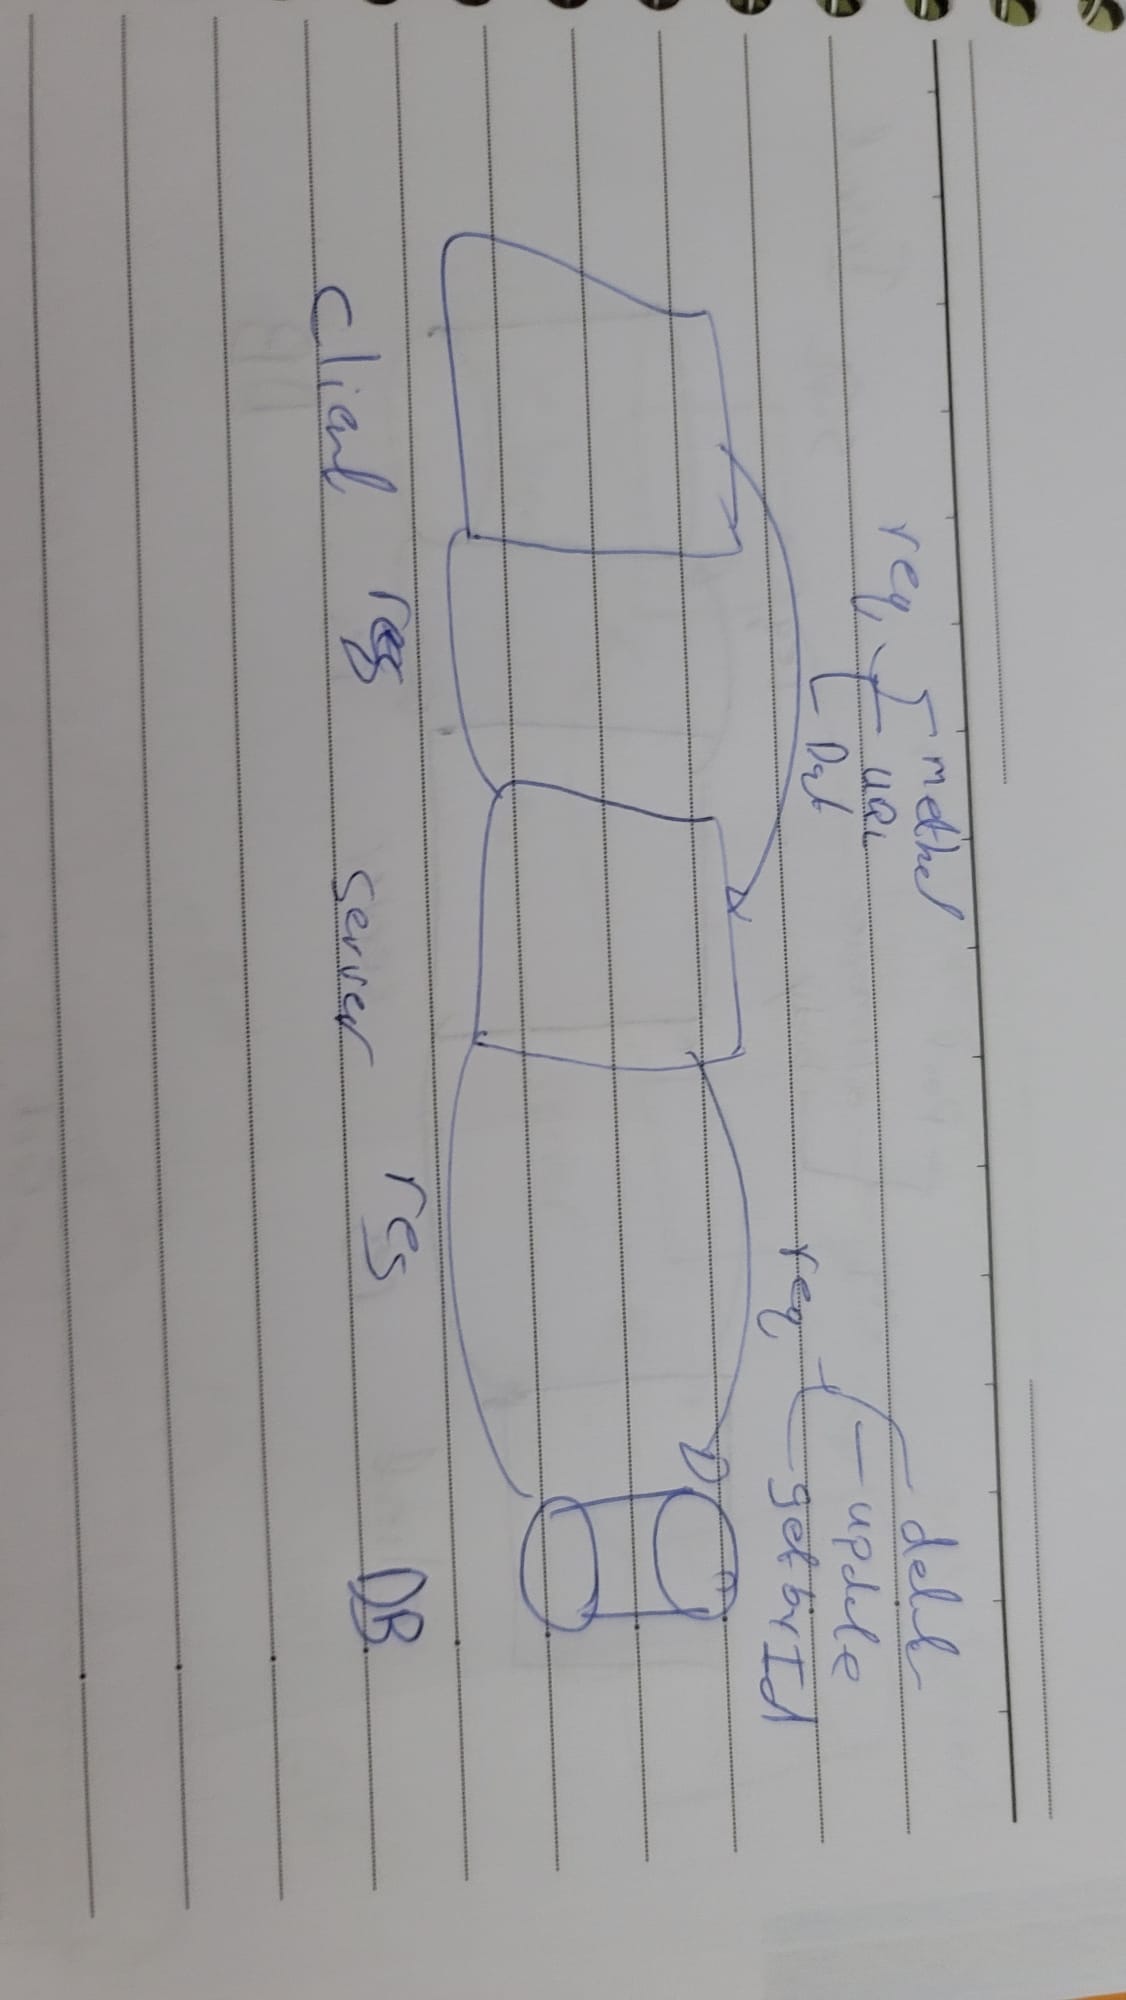 req
method
URL
Dat
req
delete
update
getbyId
client
res
server
res
DB